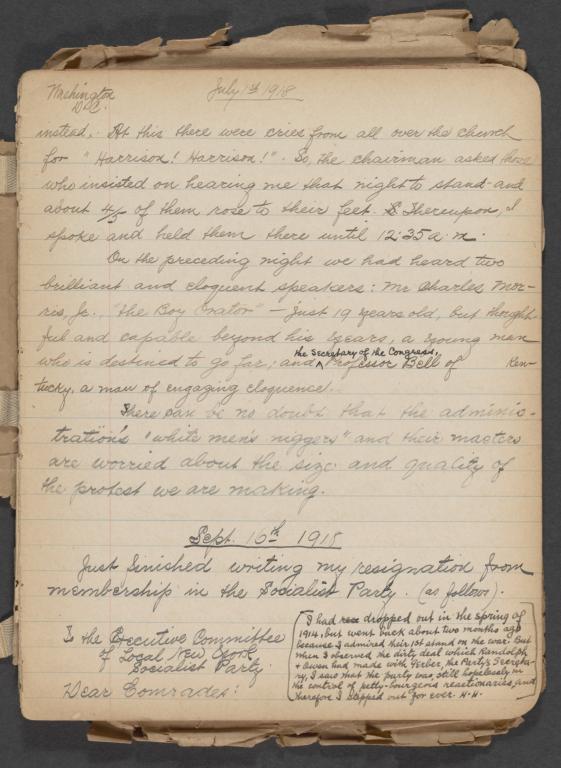 Washington
D.C.
July 1st 1918
instead. At this there were cries from all over the church
for "Harrison! Harrison!". So, the chairman asked those
who insisted on hearing me that night to stand - and
about 4/5 of them rose to their feet. Thereupon, I
spoke and held them there until 12:35 a.m.
On the preceding night we had heard two
brilliant and eloquent speakers: Mr Charles Mor-
ris, Jr., "the Boy Orator" - just 19 years old, but thought-
ful and capable beyond his years, a young man
the Secretary of the Congress,
who is destined to go far; and ^ Professor Bell of Ken-
tucky, a man of engaging eloquence.
There can be no doubt that the adminis-
tration's "white men's niggers" and their masters
are worried about the size and quality of
the protest we are making.
Sept. 16th 1918
Just finished writing my resignation from
membership in the Socialist Party. (as follows).
To the Executive Committee
of Local New York
Socialist Party.
Dear Comrades:
I had dropped out in the spring of
1914, but went back about two months ago
because I admired their 1st stand on the war. But
when I observed the dirty deal which Randolph
+ Owen had made with Gerber, the Party's Secreta-
ry, I saw that the party was still hopelessly in
the control of petty-bourgeois reactionaries, and
therefore I stepped out for ever. H.H.